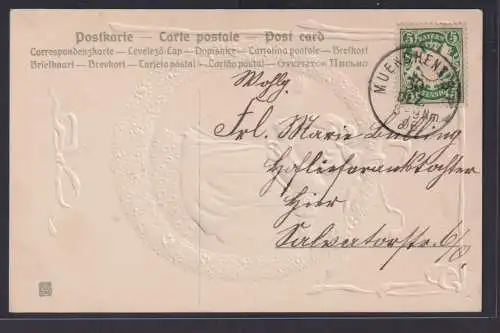 Postkarte – Carte postale – Post card
Correspondenzkarte – Levelező-Lap – Dopisnice – Cartolina postale – Brefkort
Briefkaart – Brevkort – Tarjeta postal – Cartão postal – Открытое Письмо
BAYERN
5 5
PFENNIG
MUENCHEN
Wohlg.
Frl. Marie
Hoflieferantstochter
Hier
Salvatorstr. 6/